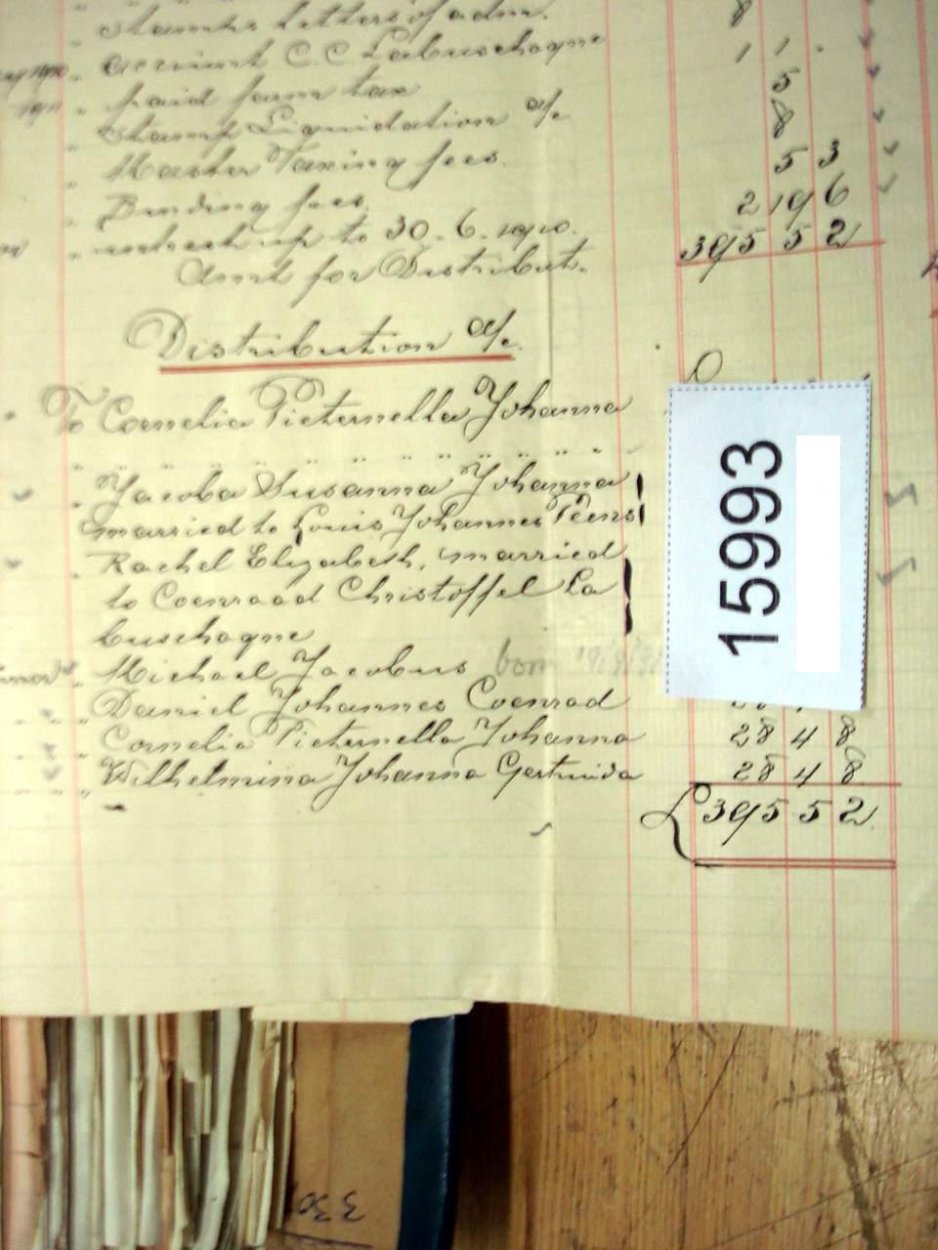 Stamps Letters of adm. 8
account C. C Labuschagne 1 1 .
paid farm tax 5
1911 " Stamp Liquidation a/c 8
" Master Taxing fees. 5 3
" Binding fees 2 19 6
" up to 30.6.1910. 395 5 2
Amt for Distribut.
Distribution a/c.
To Cornelia Pieternella Johanna
" Jacoba Susanna Johanna
married to Louis Johannes Peens
" Rachel Elizabeth, married
to Coenraad Christoffel La
buschagne
" Michael Jacobus born
" Daniel Johannes Coenrad
" Cornelia Pieternella Johanna 28 4 8
" Wilhelmina Johanna Gertruida 28 4 8
£ 395 5 2
15993